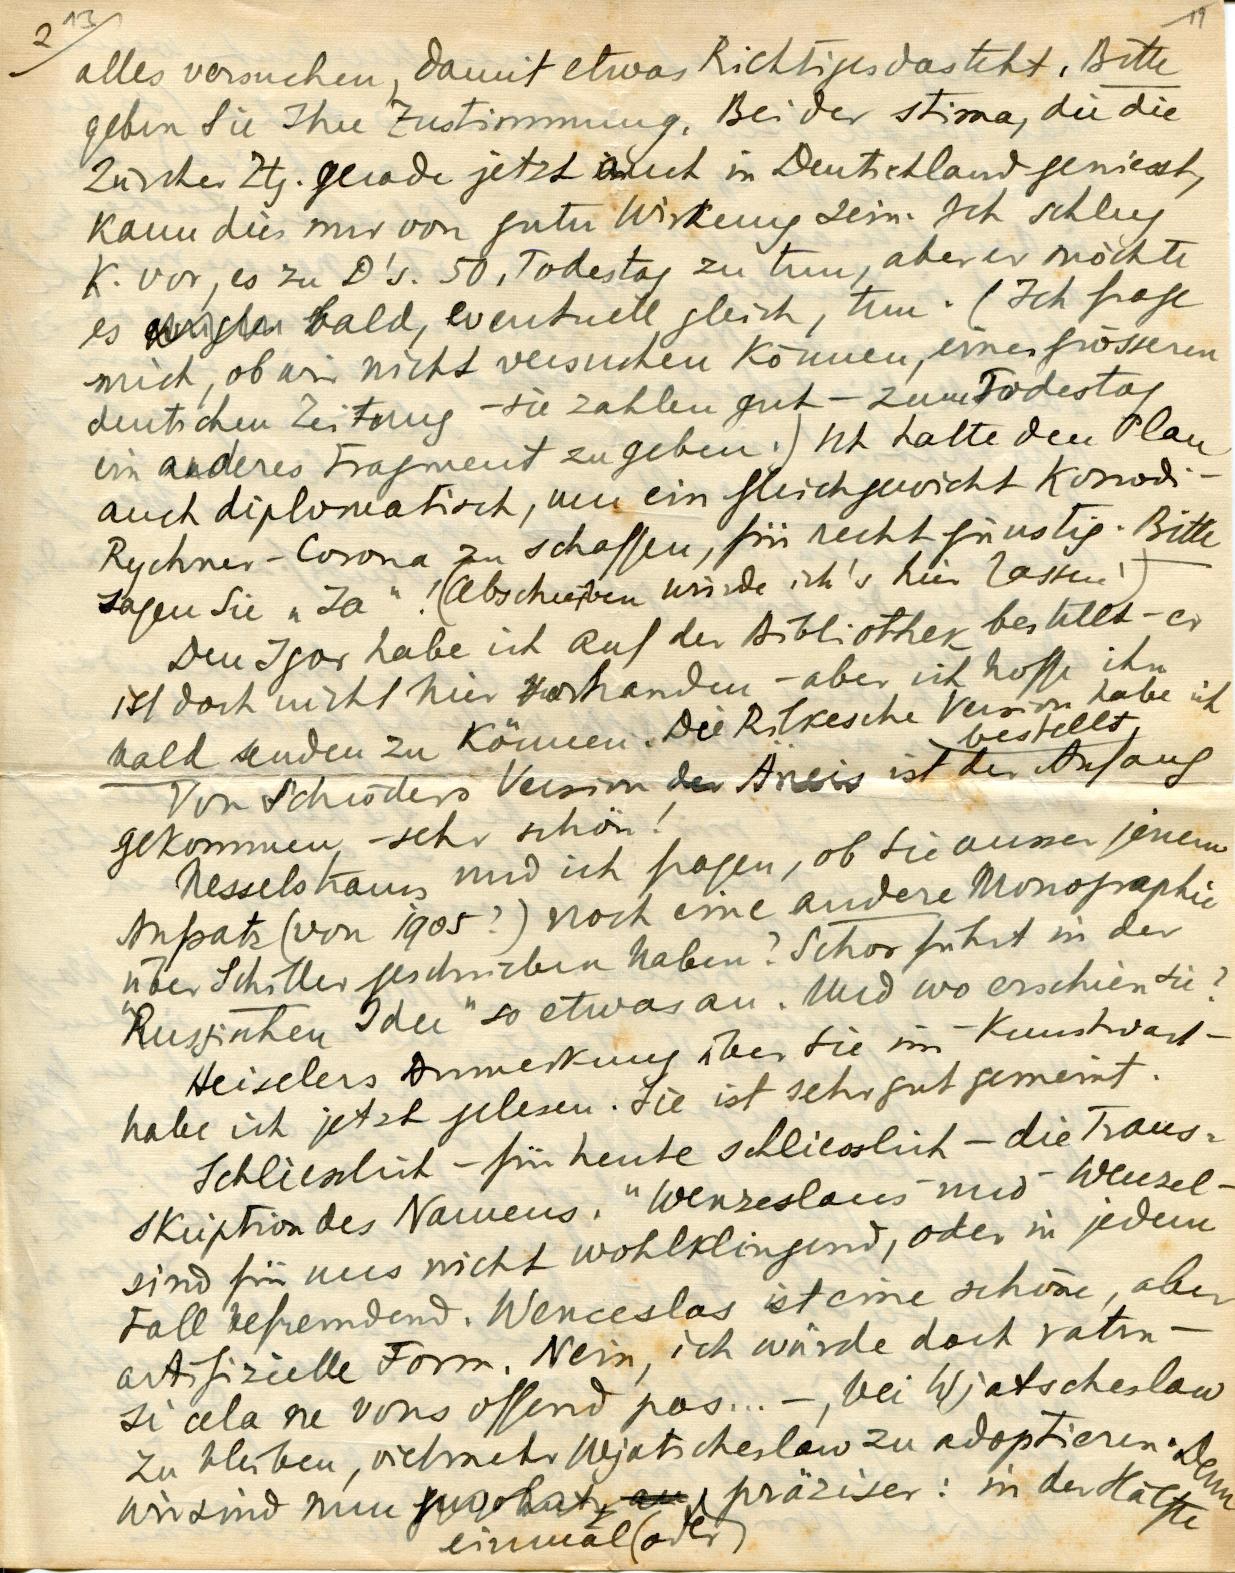 2 13 11
alles versuchen, damit etwas Richtiges dasteht. Bitte
geben Sie Ihre Zustimmung. Bei der stima, die die
Zürcher Ztg. gerade jetzt auch in Deutschland geniesst,
kann dies nur von guter Wirkung sein. Ich schlug
K. vor, es zu D's. 50. Todestag zu tun, aber er möchte
es bald, eventuell gleich, tun. (Ich frage
mich, ob wir nicht versuchen können, einer grösseren
deutschen Zeitung – sie zahlen gut – zum Todestag
ein anderes Fragment zu geben.) Ich halte den Plan
auch diplomatisch, um ein Gleichgewicht Korrodi-
Rychner-Corona zu schaffen, für recht günstig. Bitte
sagen Sie „Ja"! (Abschreiben würde ich's hier lassen!)
Den Igor habe ich auf der Bibliothek bestellt – er
ist doch nicht hier vorhanden – aber ich hoffe ihn
bald senden zu können. Die Rilkesche Version habe ich
bestellt.
Von Schröders Version der Äneis ist der Anfang
gekommen, – sehr schön!
Nesselstrauss und ich fragen, ob Sie ausser jenem
Aufsatz (von 1905?) noch eine andere Monographie
über Schiller geschrieben haben? Schor führt in der
"Russischen Idee" so etwas an. Und wo erschien sie?
Heiselers Anmerkung über Sie im Kunstwart –
habe ich jetzt gelesen. Sie ist sehr gut gemeint.
Schliesslich – für heute schliesslich – die Trans-
skription des Namens. "Wenzeslaus" und Wenzel –
sind für uns nicht wohlklingend, oder in jedem
Fall befremdend. Wenceslas ist eine schöne, aber
artifizielle Form. Nein, ich würde doch raten –
si cela ne vous offend pas... –, bei Wjatscheslaw
zu bleiben, vielmehr Wjatscheslaw zu adoptieren. Denn
wir sind nun präziser: in der Hälfte
einmal (oder)